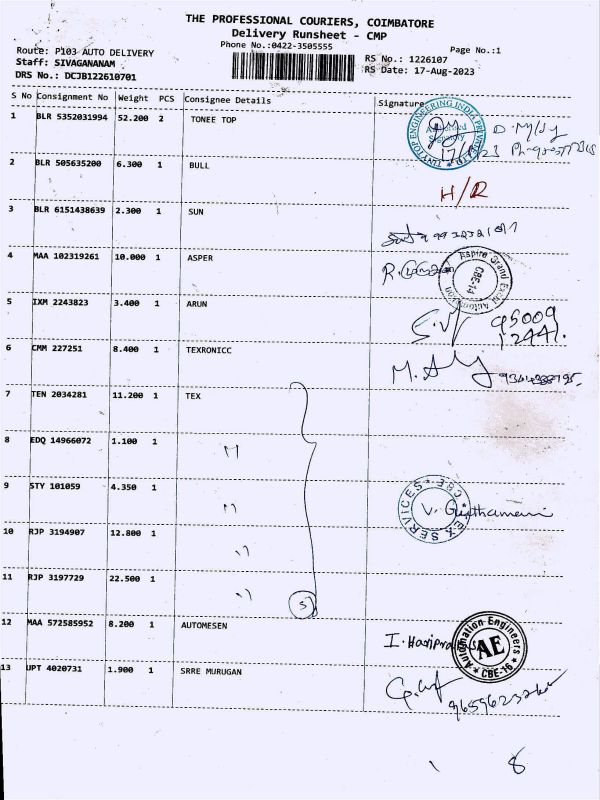 THE PROFESSIONAL COURIERS, COIMBATORE
Delivery Runsheet - CMP
Phone No.:0422-3505555
Page No.:1
Route: P103 AUTO DELIVERY
Staff: SIVAGANANAM
DRS No.: DCJB122610701
RS No.: 1226107
RS Date: 17-Aug-2023
S No Consignment No Weight PCS Consignee Details Signature
1 BLR 5352031994 52.200 2 TONEE TOP
TINYTOP ENGINEERING INDIA PRIVATE LTD
2 BLR 505635200 6.300 1 BULL
H/R
3 BLR 6151438639 2.300 1 SUN
4 MAA 102319261 10.000 1 ASPER
CBE-14
5 IXM 2243823 3.400 1 ARUN
95009
12441.
6 CMM 227251 8.400 1 TEXRONICC
7 TEN 2034281 11.200 1 TEX
8 EDQ 14966072 1.100 1 "
9 STY 101059 4.350 1 "
EX SERVICES * CBE
10 RJP 3194907 12.800 1 "
11 RJP 3197729 22.500 1 "
5
12 MAA 572585952 8.200 1 AUTOMESEN
Automation Engineers
AE
CBE-16
13 UPT 4020731 1.900 1 SRRE MURUGAN
8